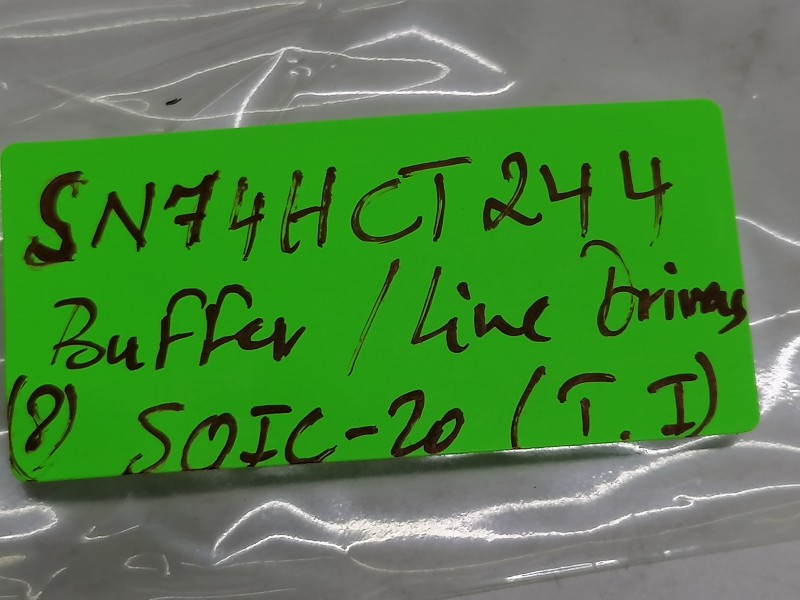 SN74HCT244
Buffer / Line Drivers
(8) SOIC-20 (T.I)